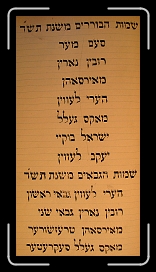 שמות הבוררים משנת תש״ד
סעם מער
רובין גארין
מאירסאהן
הערי לעווין
מאקס געלל
ישראל בוקיי
יעקב לעווין
שמות הגבאים משנת תש״ד
הערי לעווין גבאי ראשון
רובין גארין גבאי שני
מאירסאהן טרעזשורער
מאקס געלל סעקרעטער